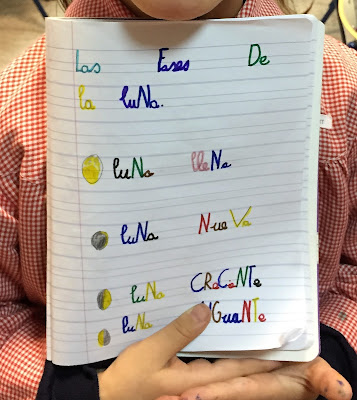 Las Fases De
la luNa.
luNa lleNa
luNa NueVa
luNa CReCieNTe
luNa